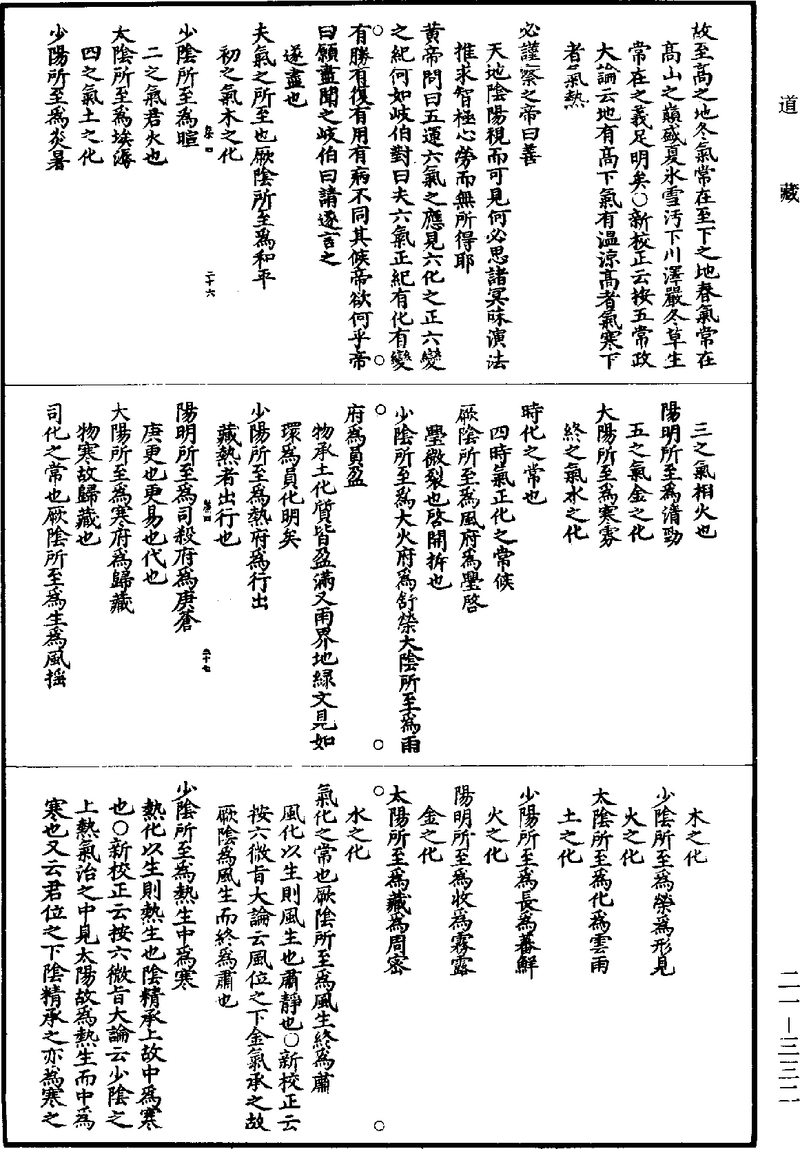 道藏
故至高之地冬氣常在至下之地春氣常在
高山之巔盛夏氷雪汚下川澤嚴冬草生
常在之義足明矣○新校正云按五常政
大論云地有高下氣有溫涼高者氣寒下
者氣熱
必謹察之帝曰善
天地陰陽視而可見何必思諸冥昧演法
推求智極心勞而無所得耶
黃帝問曰五運六氣之應見六化之正六變
之紀何如岐伯對曰夫六氣正紀有化有變
有勝有復有用有病不同其候帝欲何乎帝
曰願盡聞之岐伯曰請遂言之
遂盡也
夫氣之所至也厥陰所至爲和平
初之氣木之化
少陰所至爲暄
二之氣君火也
太陰所至爲埃溽
四之氣土之化
少陽所至爲炎暑
二十六
三之氣相火也
陽明所至爲清勁
五之氣金之化
太陽所至爲寒雰
終之氣水之化
時化之常也
四時氣正化之常候
厥陰所至爲風府爲璺啓
璺微裂也啓開拆也
少陰所至爲大火府爲舒榮太陰所至爲雨
府爲員盈
物承土化質皆盈滿又雨界地綠文見如
環爲員化明矣
少陽所至爲熱府爲行出
藏熱者出行也
陽明所至爲司殺府爲庚蒼
庚更也更易也代也
太陽所至爲寒府爲歸藏
物寒故歸藏也
司化之常也厥陰所至爲生爲風搖
二十七
木之化
少陰所至爲榮爲形見
火之化
太陰所至爲化爲雲雨
土之化
少陽所至爲長爲蕃鮮
火之化
陽明所至爲收爲霧露
金之化
太陽所至爲藏爲周密
水之化
氣化之常也厥陰所至爲風生終爲肅
風化以生則風生也肅靜也○新校正云
按六微旨大論云風位之下金氣承之故
厥陰爲風生而終爲肅也
少陰所至爲熱生中爲寒
熱化以生則熱生也陰精承上故中爲寒
也○新校正云按六微旨大論云少陰之
上熱氣治之中見太陽故爲熱生而中爲
寒也又云君位之下陰精承之亦爲寒之
二一—三三二